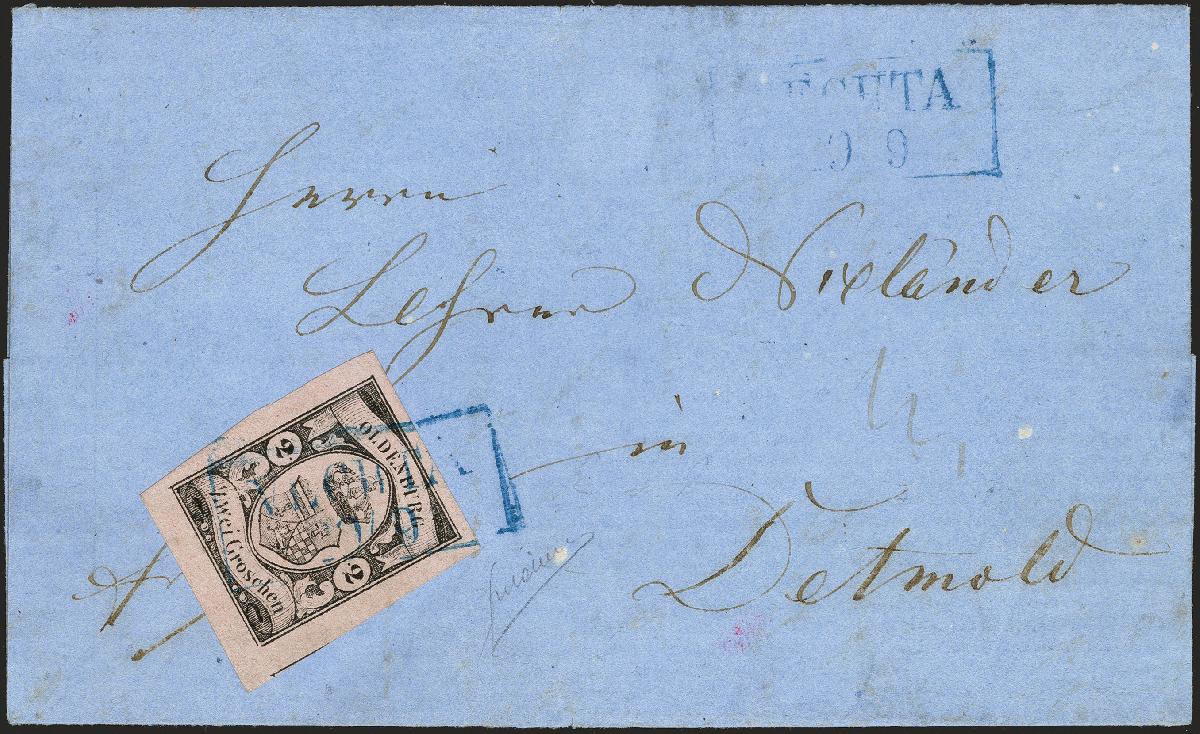 ECHTA
9
Herrn
Lehrer Nixländer
in
Detmold
OLDENBURG
2
2
Zwei Groschen
fr